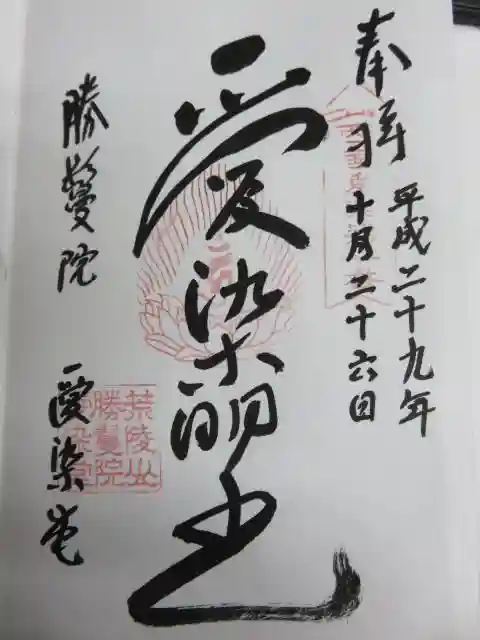 奉拝
平成二十九年
十月二十六日
愛染明王
勝鬘院
愛染堂
荒陵山
勝鬘院
愛染堂